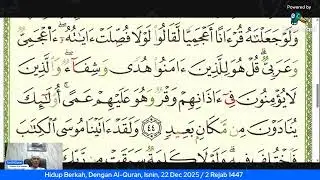 Powered by
وَلَوْ جَعَلْنَٰهُ قُرْءَانًا أَعْجَمِيًّا لَّقَالُوا۟ لَوْلَا فُصِّلَتْ ءَايَٰتُهُۥٓ ۖ ءَا۬عْجَمِىٌّ
وَعَرَبِىٌّ ۗ قُلْ هُوَ لِلَّذِينَ ءَامَنُوا۟ هُدًى وَشِفَآءٌ ۖ وَٱلَّذِينَ
لَا يُؤْمِنُونَ فِىٓ ءَاذَانِهِمْ وَقْرٌ وَهُوَ عَلَيْهِمْ عَمًى ۚ أُو۟لَٰٓئِكَ
يُنَادَوْنَ مِن مَّكَانٍۭ بَعِيدٍ ٤٤ وَلَقَدْ ءَاتَيْنَا مُوسَى ٱلْكِتَٰبَ
فَٱخْتُلِفَ فِيهِ ۗ وَلَوْلَا كَلِمَةٌ
Hidup Berkah, Dengan Al-Quran, Isnin, 22 Dec 2025 / 2 Rejab 1447